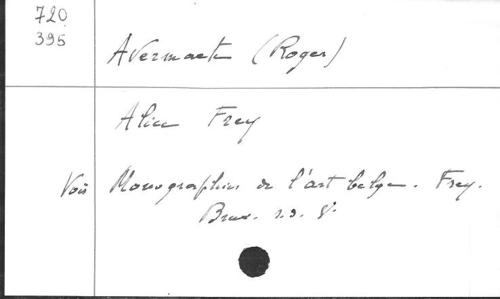 720
395
Avermaete (Roger)
Alice Frey
Voir Monographies de l'art belge. Frey.
Brux. s.d. 8°.